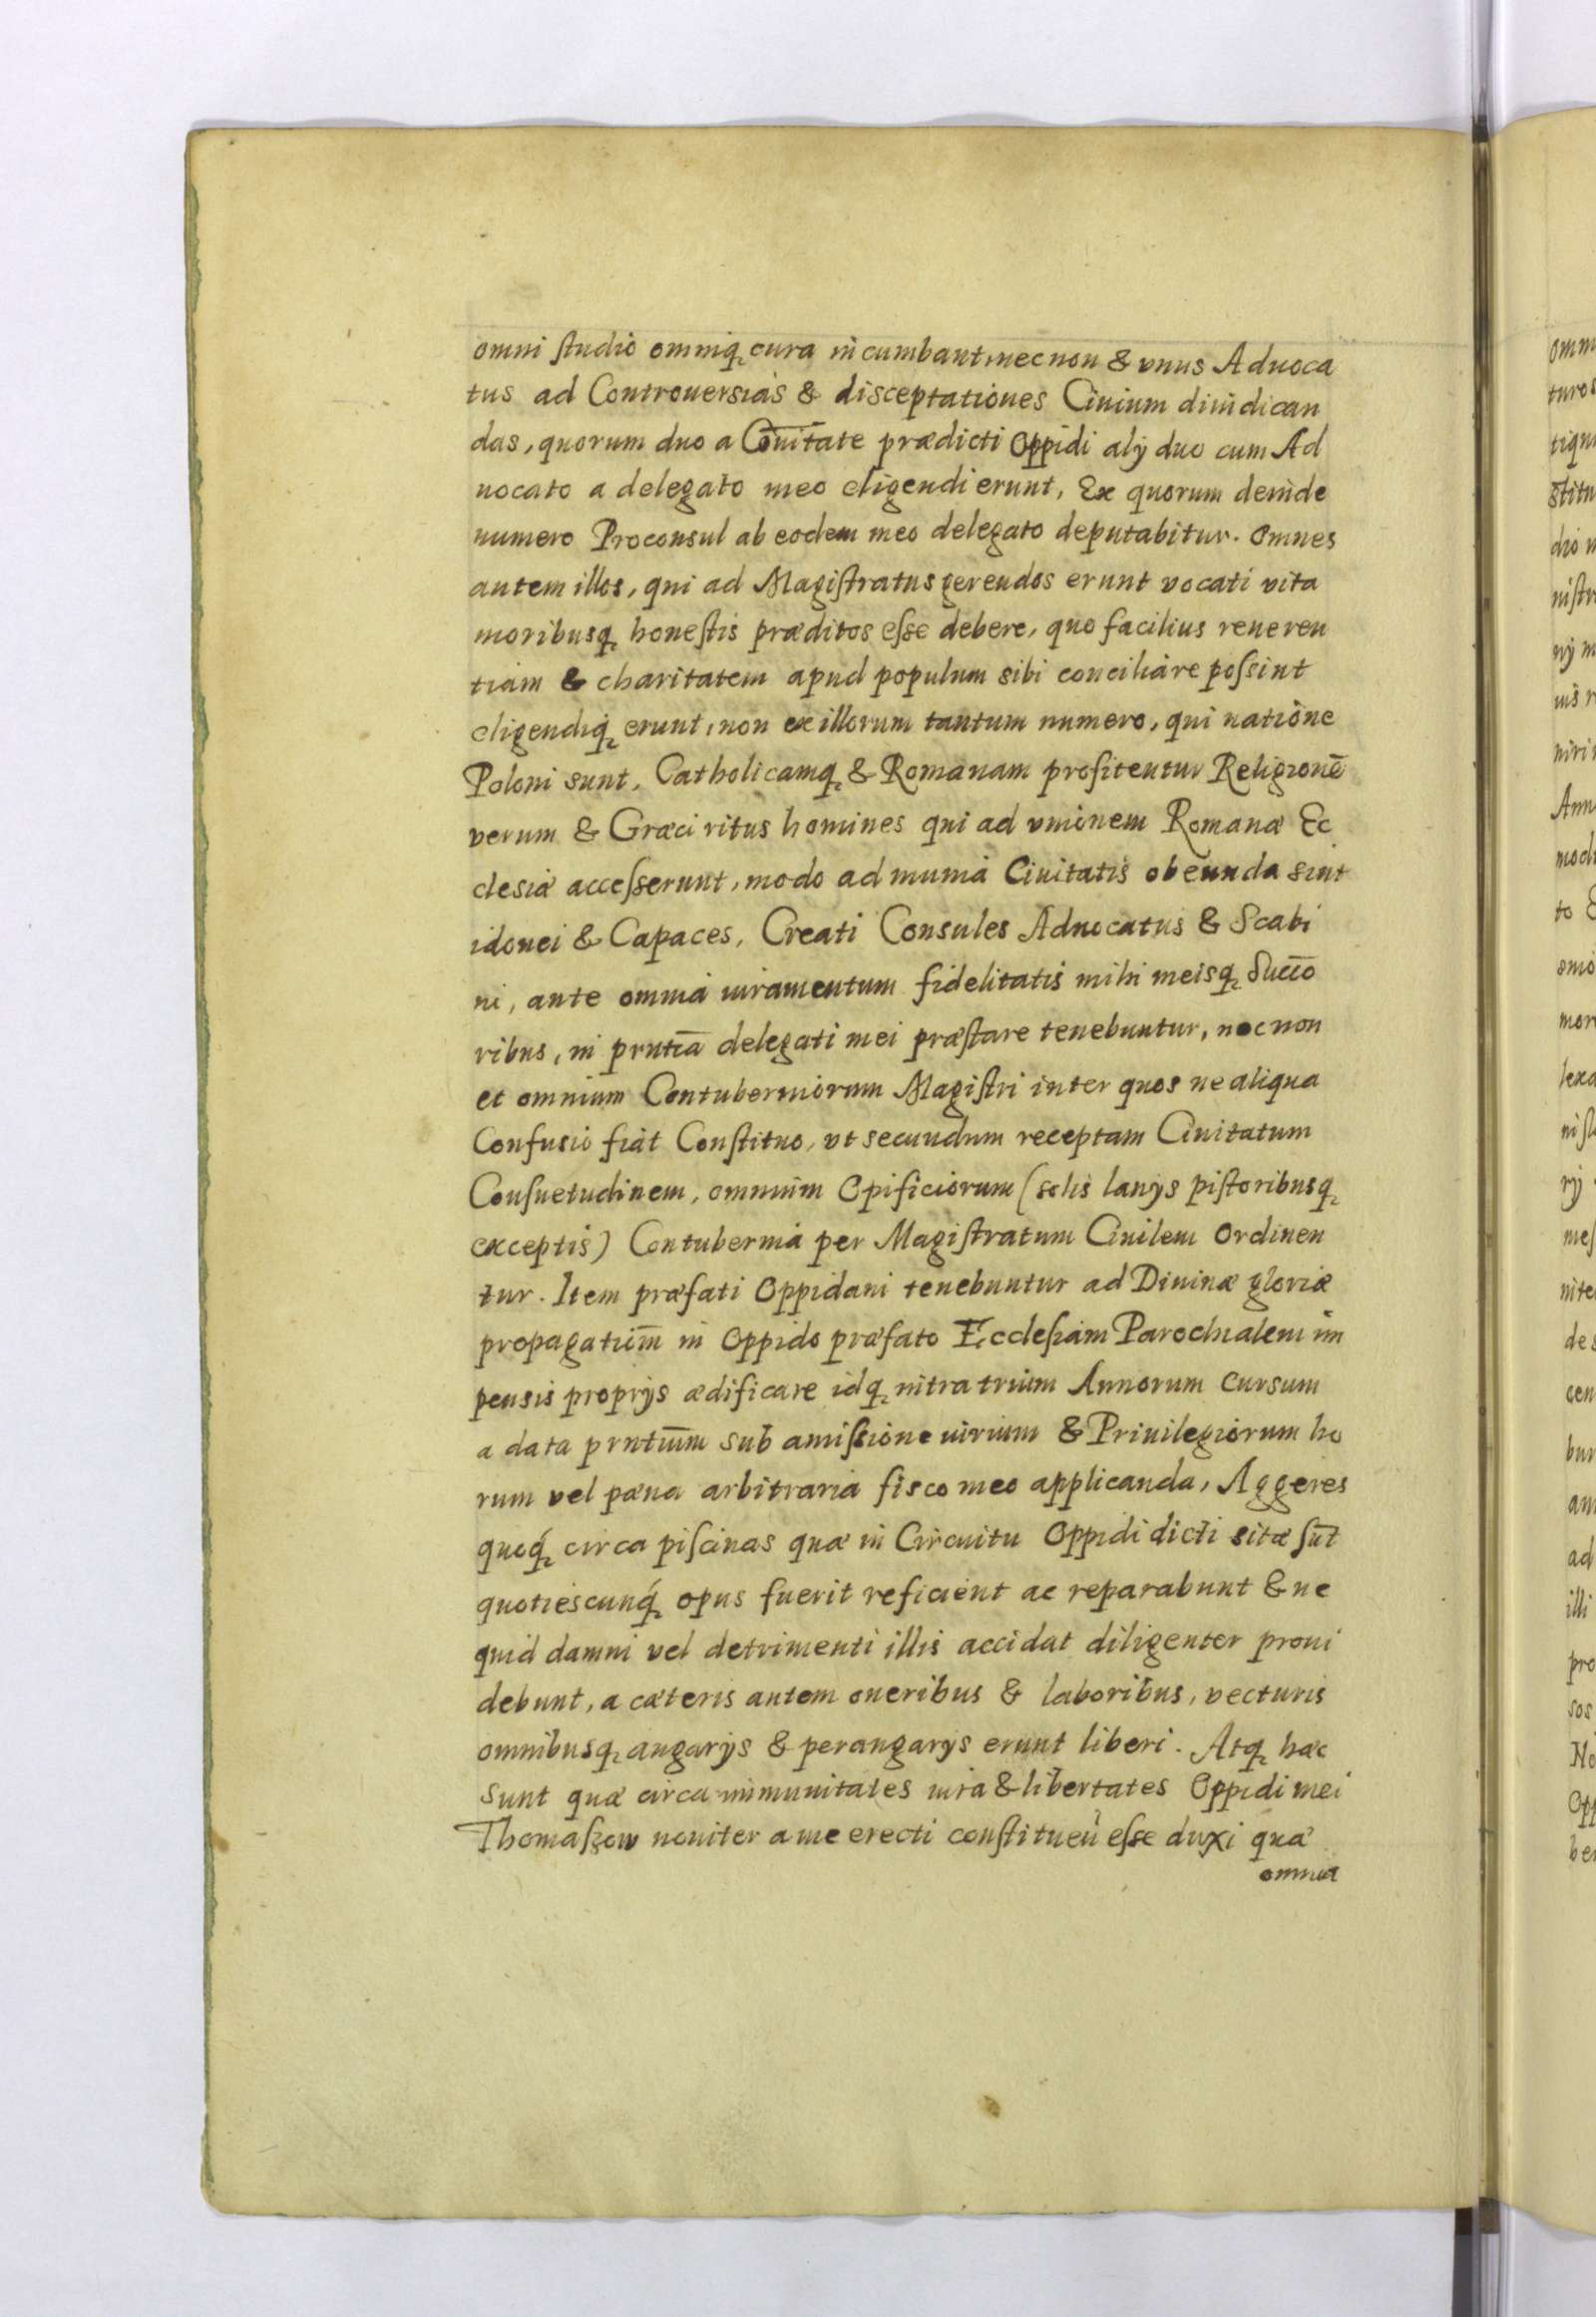 omni studio omniq. cura incumbant, necnon & vnus Aduoca
tus ad Controuersias & disceptationes Ciuium diiudican
das, quorum duo a Cōuitate prædicti Oppidi alÿ duo cum Ad
uocato a delegato meo eligendi erunt, Ex quorum deinde
numero Proconsul ab eodem meo delegato deputabitur. Omnes
autem illos, qui ad Magistratus gerendos erunt vocati vita
moribusq. honestis præditos esse debere, quo facilius reueren
tiam & charitatem apud populum sibi conciliare possint
eligendiq. erunt, non ex illorum tantum numero, qui natione
Poloni sunt, Catholicamq. & Romanam profitentur Religionē
verum & Græci ritus homines qui ad vnionem Romanæ Ec
clesiæ accesserunt, modo ad munia Ciuitatis obeunda sint
idonei & Capaces, Creati Consules Aduocatus & Scabi
ni, ante omnia iuramentum fidelitatis mihi meisq. Succō
ribus, in prntiā delegati mei præstare tenebuntur, necnon
et omnium Contuberniorum Magistri inter quos ne aliqua
Confusio fiat Constituo, vt secundum receptam Ciuitatum
Consuetudinem, omnium Opificiorum (solis lanÿs pistoribusq.
exceptis) Contubernia per Magistratum Ciuilem Ordinen
tur. Item præfati Oppidani tenebuntur ad Diuinæ gloriæ
propagatiōm in Oppido præfato Ecclesiam Parochialem im
pensis proprÿs ædificare idq. intra trium Annorum Cursum
a data prntiūm sub amissione iurium & Priuilegiorum ho
rum vel pæna arbitraria fisco meo applicanda, Aggeres
quoq́. circa piscinas quæ in Circuitu Oppidi dicti sitæ sūt
quotiescunq́. opus fuerit reficient ac reparabunt & ne
quid damni vel detrimenti illis accidat diligenter proui
debunt, a cæteris autem oneribus & laboribus, vecturis
omnibusq. angarÿs & perangarÿs erunt liberi. Atq. hæc
sunt quæ circa immunitates iura & libertates Oppidi mei
Thomaszow nouiter a me erecti constitueñ esse duxi quæ
omnia